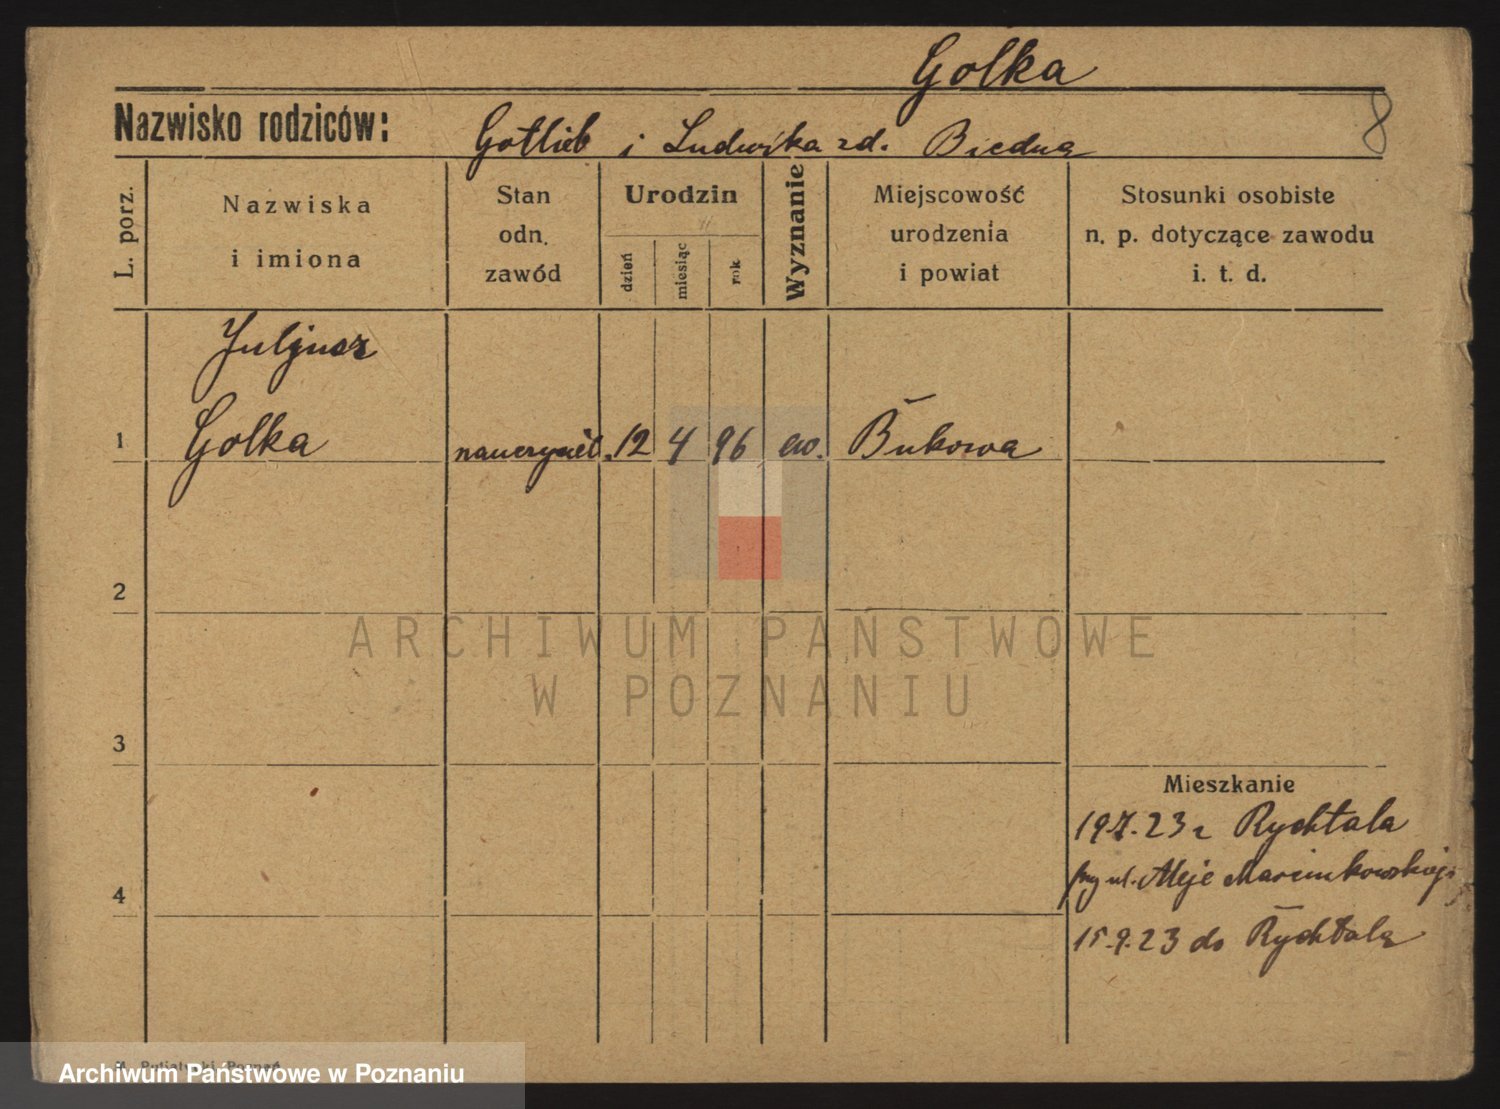 Golka
8
Nazwisko rodziców: Gotlieb i Ludwika zd. Biedna
L. porz.
Nazwiska
i imiona
Stan
odn.
zawód
Urodzin
dzień
miesiąc
rok
Wyznanie
Miejscowość
urodzenia
i powiat
Stosunki osobiste
n. p. dotyczące zawodu
i. t. d.
Juljusz
1 Golka nauczyciel. 12 4 96 ew. Bukowa
2
ARCHIWUM PAŃSTWOWE
W POZNANIU
3
Mieszkanie
19.7.23 z Rychtala
przy ul. Aleje Marcinkowskiego
4
15.9.23 do Rychtala
Archiwum Państwowe w Poznaniu